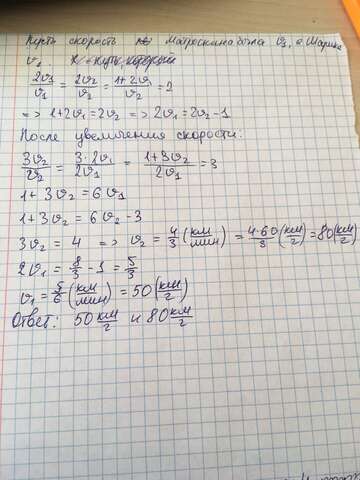 Пусть скорость Матроскина была v₁, а Шарика
v₂ , x - путь, который
2v₁/v₁ = 2v₂/v₂ = 1+2v₁/v₂ = 2
=> 1+2v₁ = 2v₂ => 2v₁ = 2v₂ - 1
После увеличения скорости:
3v₂/v₂ = 3·2v₁/2v₁ = 1+3v₂/2v₁ = 3
1 + 3v₂ = 6v₁
1 + 3v₂ = 6v₂ - 3
3v₂ = 4 => v₂ = 4/3 (км/мин) = 4·60/3 (км/ч) = 80 (км/ч)
2v₁ = 8/3 - 1 = 5/3
v₁ = 5/6 (км/мин) = 50 (км/ч)
Ответ: 50 км/ч и 80 км/ч